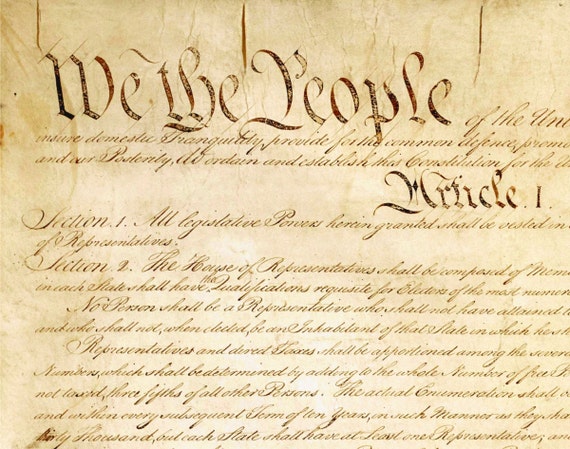 We the People of the Unit
insure domestic Tranquility, provide for the common defence, promo
and our Posterity, do ordain and establish this Constitution for the U
Article. I.
Section. 1. All legislative Powers herein granted shall be vested in
of Representatives.
Section. 2. The House of Representatives shall be composed of Mem
in each State shall have the Qualifications requisite for Electors of the most numero
No Person shall be a Representative who shall not have attained t
and who shall not, when elected, be an Inhabitant of that State in which he s
Representatives and direct Taxes shall be apportioned among the severa
Numbers, which shall be determined by adding to the whole Number of free P
not taxed, three fifths of all other Persons. The actual Enumeration shall
and within every subsequent Term of ten Years, in such Manner as they sha
thirty Thousand, but each State shall have at Least one Representative; an